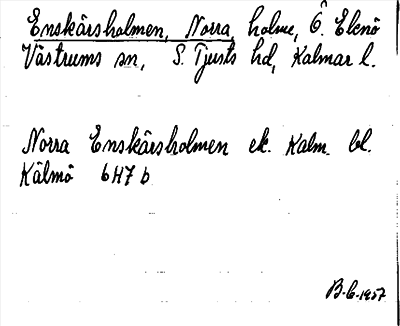 Enskärsholmen, Norra, holme, Ö. Eknö
Västrums sn, S. Tjusts hd, Kalmar l.
Norra Enskärsholmen ek. Kalm. bl.
Kälmö 6H7b
B-6-1957